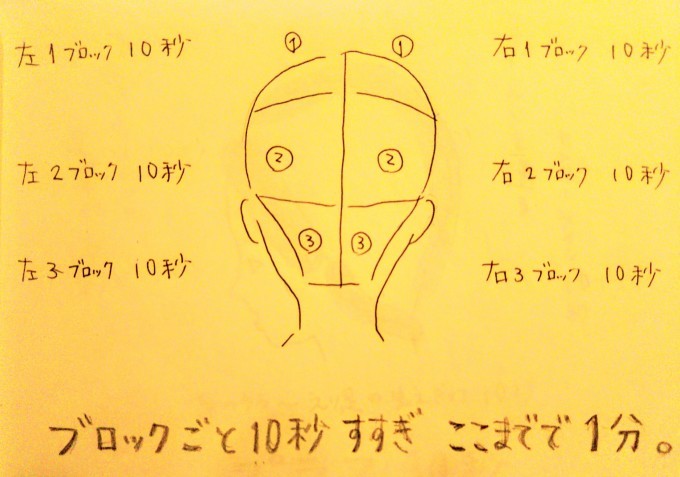 ① ①
左1ブロック 10秒 右1ブロック 10秒
② ②
左2ブロック 10秒 右2ブロック 10秒
③ ③
左3ブロック 10秒 右3ブロック 10秒
ブロックごと10秒 すすぎ ここまでで 1分。